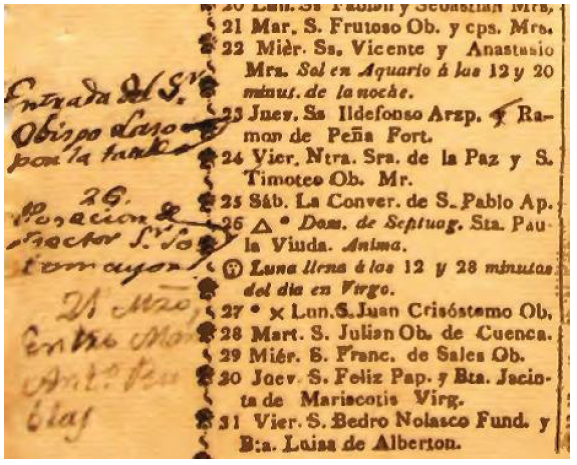 20 Lun. Ss Fabian y Sebastian Mrs,
21 Mar. S. Frutoso Ob. y cps. Mrs.
22 Mièr. Ss. Vicente y Anastasio
Mrs. Sol en Aquario á las 12 y 20
minut. de la noche.
23 Juev. Ss Ildefonso Arzp. y Ra-
mon de Peña Fort.
24 Vier. Ntra. Sra. de la Paz y S.
Timoteo Ob. Mr.
25 Sáb. La Conver. de S. Pablo Ap.
26 △ * Dom. de Septuag. Sta. Pau-
la Viuda. Anima.
Luna llena á las 12 y 28 minutos
del dia en Virgo.
27 * × Lun. S. Juan Crisóstomo Ob,
28 Mart. S. Julian Ob. de Cuenca.
29 Miér. S. Franc. de Sales Ob.
30 Juev. S. Feliz Pap. y Bta. Jacin-
ta de Mariscotis Virg.
31 Vier. S. Pedro Nolasco Fund. y
B:a. Luisa de Alberton.
Entrada del Sr.
Obispo Laso
por la tarde
26.
Posecion de
Rector Sr. So
tomayor
21 Mzo,
Entro
Anto.
blas